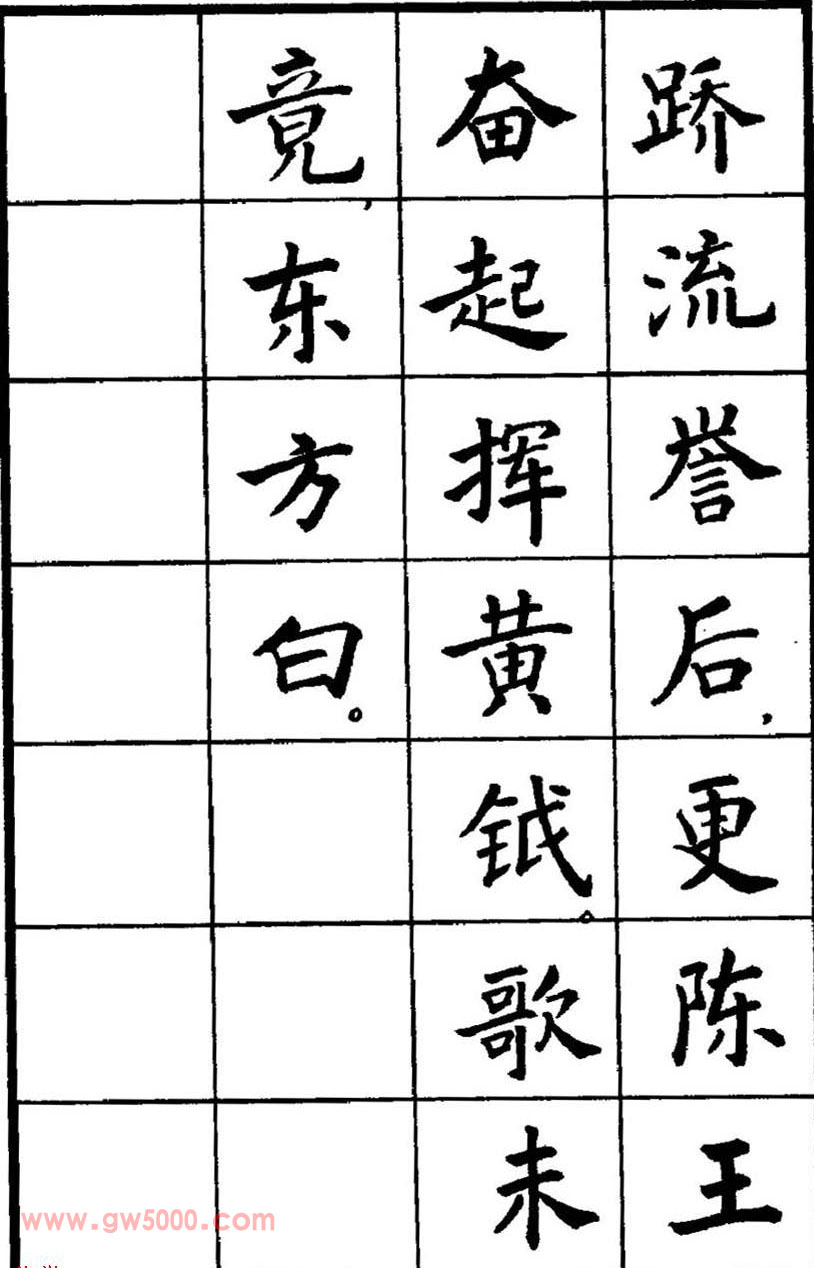 跻流誉后，更陈王
奋起挥黄钺。歌未
竟，东方白。
www.gw5000.com